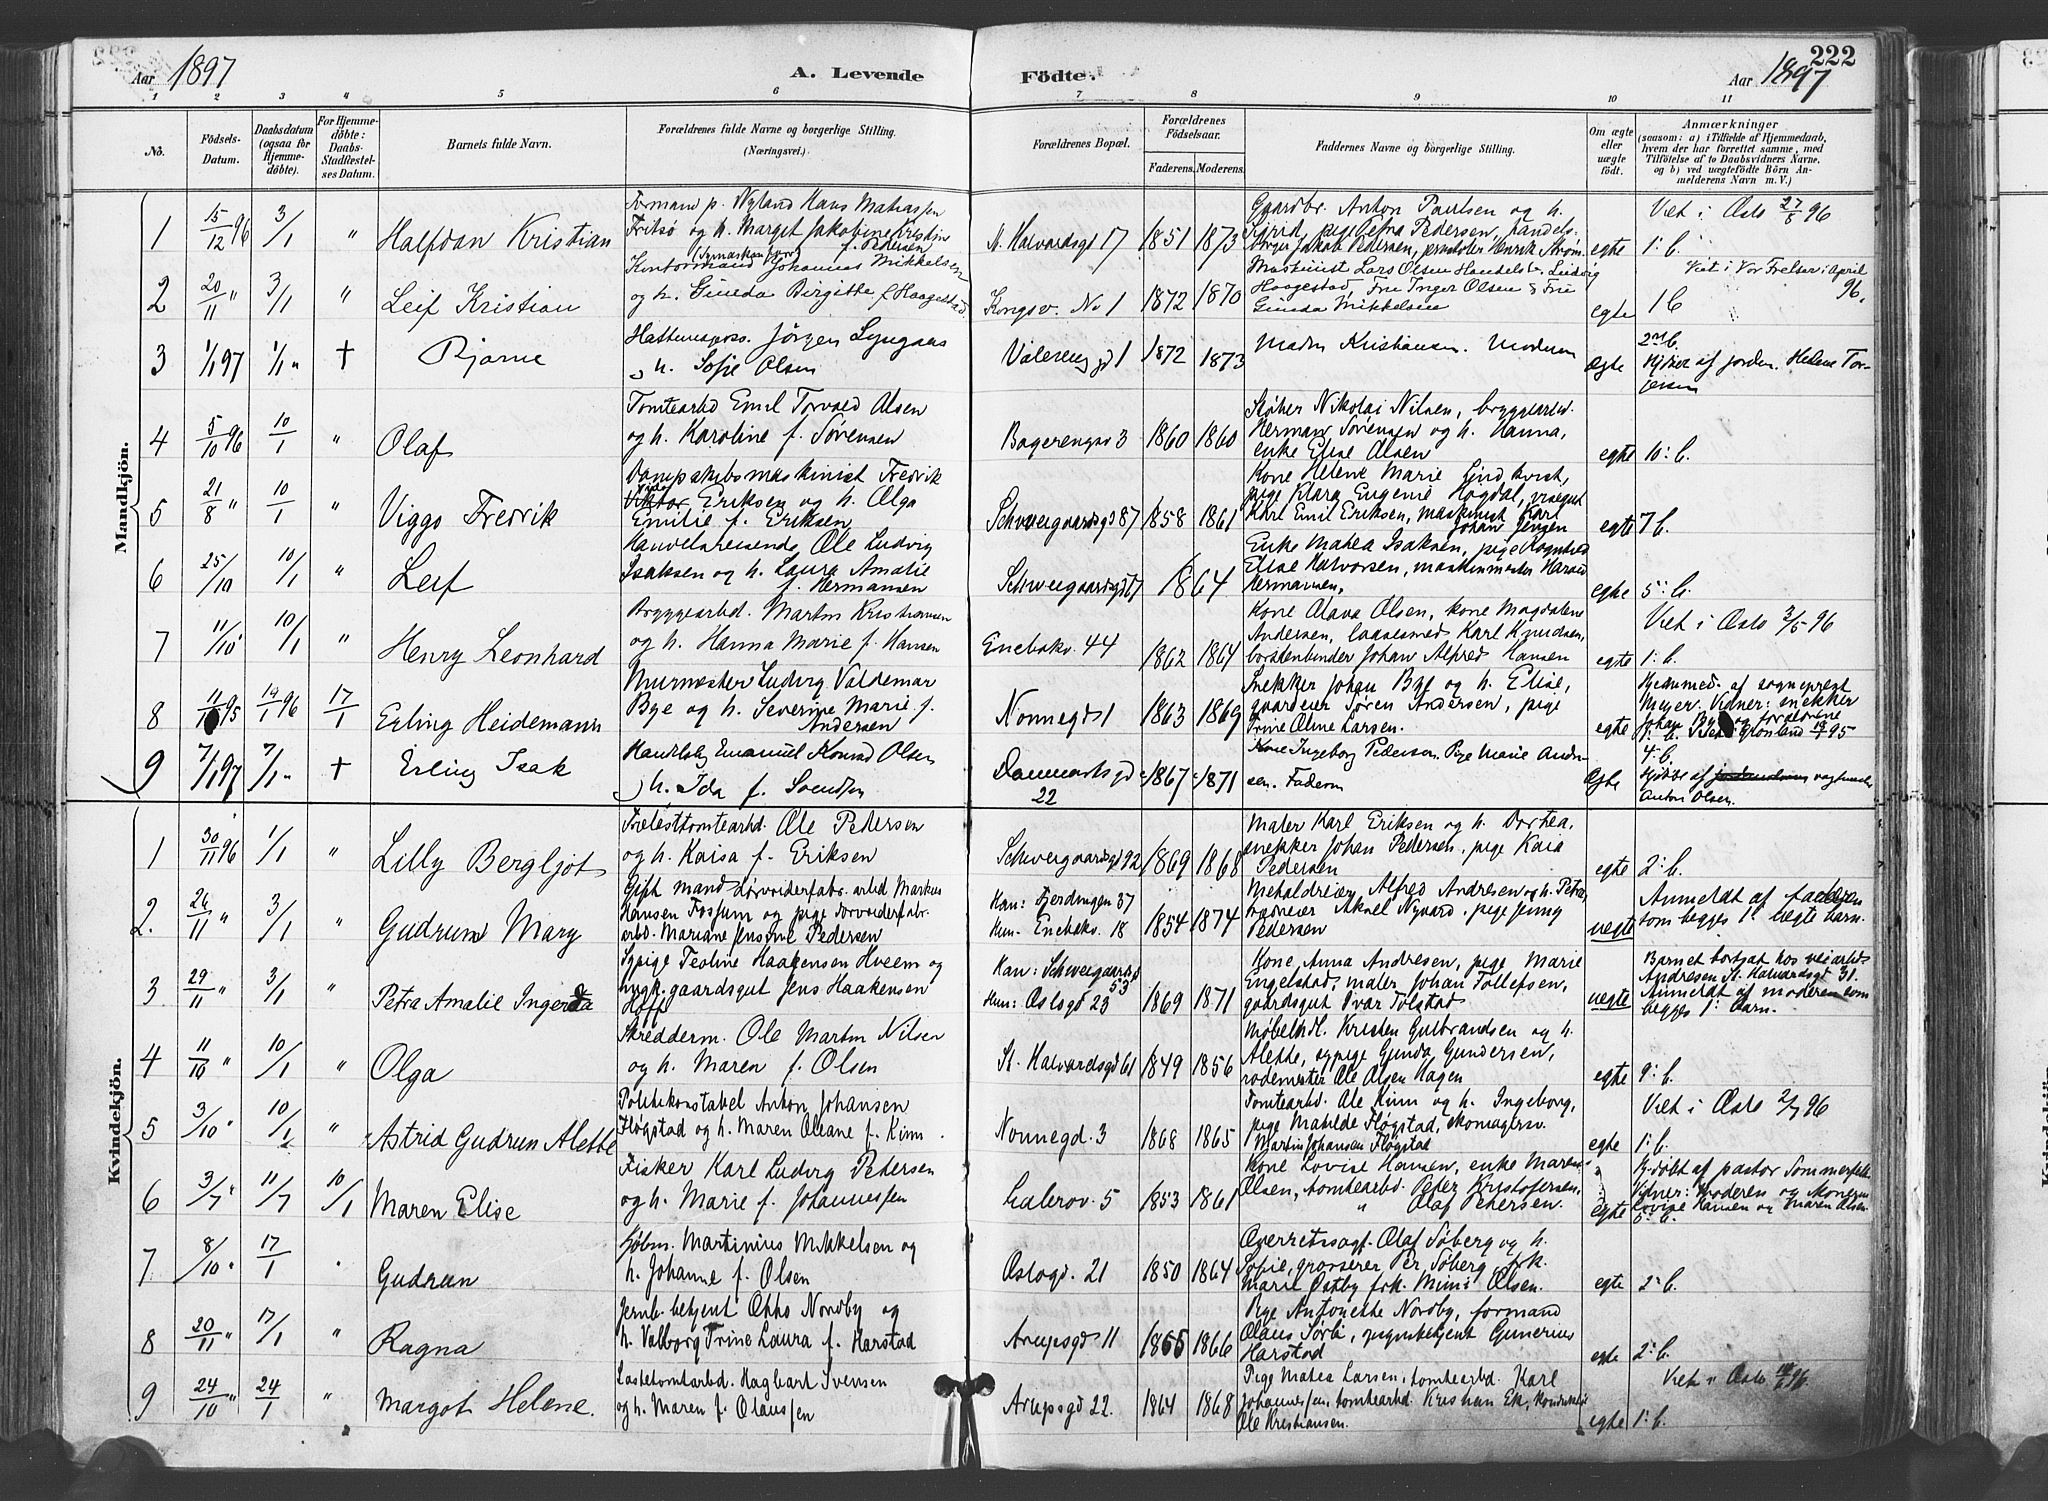 222
Aar 1897
A. Levende Födte.
Aar 1897
1 2 3 4 5 6 7 8 9 10 11
No.
Födsels-Datum.
Daabsdatum (ogsaa for Hjemmedöbte).
For Hjemmedöbte: Daabs-Stadfæstelses Datum.
Barnets fulde Navn.
Forældrenes fulde Navne og borgerlige Stilling.
(Næringsvei.)
Forældrenes Bopæl.
Forældrenes Födselsaar.
Faderens. Moderens.
Faddernes Navne og borgerlige Stilling.
Om ægte eller uægte födt.
Anmærkninger
(saasom: a) i Tilfælde af Hjemmedaab, hvem der har forrettet samme, med Tilföielse af to Daabsvidners Navne. og b) ved uægtefödte Börn Anmelderens Navn m. V.)
Mandkjön.
1 15/12 96 3/1 " Halfdan Kristian
Formand p. Nyland Hans Mathiassen
Fritsø og h. Marget Jakobine Kristin
f. Pedersen
St. Halvardsgd 17 1851 1873
Gaardbr. Anton Paulsen og h.
egte
Viet i Oslo 27/8 96
1: b.
2 20/11 " 3/1 " Leif Kristian
Kontormand Johannes Mikkelsen
og h. Gunda Birgitte f. Haagestad
Kongsv. No 1 1872 1870
Maskinist Lars Olsen Handelsb. Ludvig
Haagestad, Fru Inger Olsen & Fru
Gunda Mikkelsen
egte
Viet i Vor Frelser i April
96.
1 b
3 1/1 97 1/1 " + Bjarne
Jörgen Lyngaas
h. Sofie Olsen
Valereng gd 1 1872 1873
Madm Kristiansen. Moderen
Ægte
2nt b.
Hjdöbt af jordem. Helene Torjersen
4 5/10 96 10/1 " Olaf
Tomtearbd Emil Torvald Olsen
og h. Karoline f. Sørensen
Bagerengsd 3 1860 1860
Nikolai Nilsen, bryggearbd.
Herman Sørensen og h. Hanna,
enke Elise Olsen
egte 10: b.
5 21/8 " 10/1 " Viggo Fredrik
Dampskibsmaskinist Fredrik
Viktor Eriksen og h. Olga
Emilie f. Eriksen
Schweigaardsgd 87 1858 1861
Kone Helene Marie Lindkvist,
pige Klara Eugenie Hogdal, visegut
Karl Emil Eriksen, maskinist Karl
Johan Jensen
egte 7 b.
6 25/10 10/1 " Leif
Handelsreisende Ole Ludvig
Isaksen og h. Laura Amalie
f. Hermansen
Schweigaardsgd 17 1864
Enke Mathea Isaksen, pige Ragnhild
Elise Halvorsen, maskinmester Harald
Hermansen,
egte 5: b.
7 11/10 10/1 " Henry Leonhard
Bryggearbd. Martin Kristiansen
og h. Hanna Marie f. Hansen
Enebakv. 44 1862 1864
Kone Olava Olsen, kone Magdalene
Andersen, laasesmed Karl Knudsen,
børstenbinder Johan Alfred Hansen
egte
Viet i Oslo 3/5 96
1: b.
8 95 19/1 96 17/1 Erling Heidemann
Murmester Ludvig Valdemar
Bye og h. Severine Marie f.
Andersen
Nonnegd 1 1863 1869
Snekker Johan Bye og h. Elise,
gaardeier Søren Andersen, pige
Trine Oline Larsen.
egte
Hjemmed. af sogneprest
Meyer. Vidner: snekker
Johan Bye og forældrene
9 7/1 97 7/1 " + Erling Isak
Handelsbg Emanuel Konrad Olsen
h. Ida f. Svendsen
Danmarksgd 22 1867 1871
Kone Ingeborg Pedersen. Pige Marie Andresen. Faderen
Ægte
4. b.
Hjdöbt af vagtmester
Anton Olsen.
Kvindekjön.
1 30/11 96 1/1 " Lilly Bergljot
Trælasttomtearbd. Ole Pedersen
og h. Kaisa f. Eriksen
Schweigaardsgd 92 1869 1868
Maler Karl Eriksen og h. Dorthea,
snekker Johan Pedersen, pige Kaia
Pedersen
egte 2: b.
2. 26/11 " 3/1 " Gudrun Mary
Gift mand Tørvoiderfabr. arbd Markus
Hansen Fossum og pige Tørvoiderfabr.
arbd. Mariane Jensine Pedersen
Han: Fjerdingen 37
Hun. Enebakv. 18 1854 1874
Metaldreier Alfred Andresen og h. Petra,
Aksel Nygard, pige Jenny
Pedersen
uegte
Anmeldt af faderen
som begges 1: uegte barn.
3 29/11 " 3/1 " Petra Amalie Ingerda
Sypige Teoline Haakensen Hveem og
ungk. gaardsgut Jens Haakensen
Hoff
Han: Schweigaardsgd 53
Hun: Oslogd 23 1869 1871
Kone Anna Andresen, pige Marie
Engelstad, maler Johan Tollefsen,
gaardsgut Ivar Tolstad
uegte
Barnet bortsat hos veiarbd.
Andresen St. Halvardsgd 31.
Anmeldt af moderen som
begges 1: barn.
4 11/10 " 10/1 " Olga
Skredderm. Ole Martin Nilsen
og h. Maren f. Olsen
St. Halvardsgd 61 1849 1856
Møbelhdl. Kristen Gulbrandsen og h.
Alette, sypige Gunda Gundersen,
rodemester Ole Olsen Hagen
egte 9: b.
5 3/10 " 10/1 " Astrid Gudrun Alette
Politikonstabel Anton Johansen
Fløgstad og h. Maren Oleane f. Kinn
Nonnegd. 3 1868 1865
Tomtearbd. Ole Kinn og h. Ingeborg,
pige Matilde Fløgstad, skomagersv.
Martin Johansen Fløgstad
egte
Viet i Oslo 2/7 96
1: b.
6 3/7 " 11/7 10/1 Maren Elise
Fisker Karl Ludvig Pedersen
og h. Marie f. Johannessen
Galerov. 5 1853 1861
Kone Lovise Hansen, enke Maren
Olsen, tomtearbd. Peter Kristofersen,
" Olaf Pedersen.
egte
Hjdøbt af pastor Sommerfelt
Vidner: Moderen og Konerne
Lovise Hansen og Maren Olsen
5: b.
7 8/10 " 17/1 " Gudrun
Kjøbm. Martinius Mikkelsen og
h. Johanne f. Olsen
Oslogd. 21 1850 1864
Overretssagf. Olaf Søberg og h.
Sofie, grosserer Per Søberg, frk.
Marie Østby frk. Mimi Olsen.
egte 2: b.
8 20/11 " 17/1 " Ragna
Jernb. betjent Otto Nordby og
h. Valborg Trine Laura f. Harstad
Arupsgd 11 1865 1866
Pige Antonette Nordby, formand
Olaus Sørli, betjent Gunerius
Harstad
egte 2: b.
9 24/10 " 24/1 " Margot Helene.
Lastetomtarbd. Hagbart Svensen
og h. Maren f. Olaussen
Arupsgd 22. 1864 1868
Pige Matea Larsen, tomtearbd. Karl
Johannessen, tomtearbd. Kristian Ek, konduktør
Ole Kristiansen.
egte
Viet i Oslo 96
1: b.